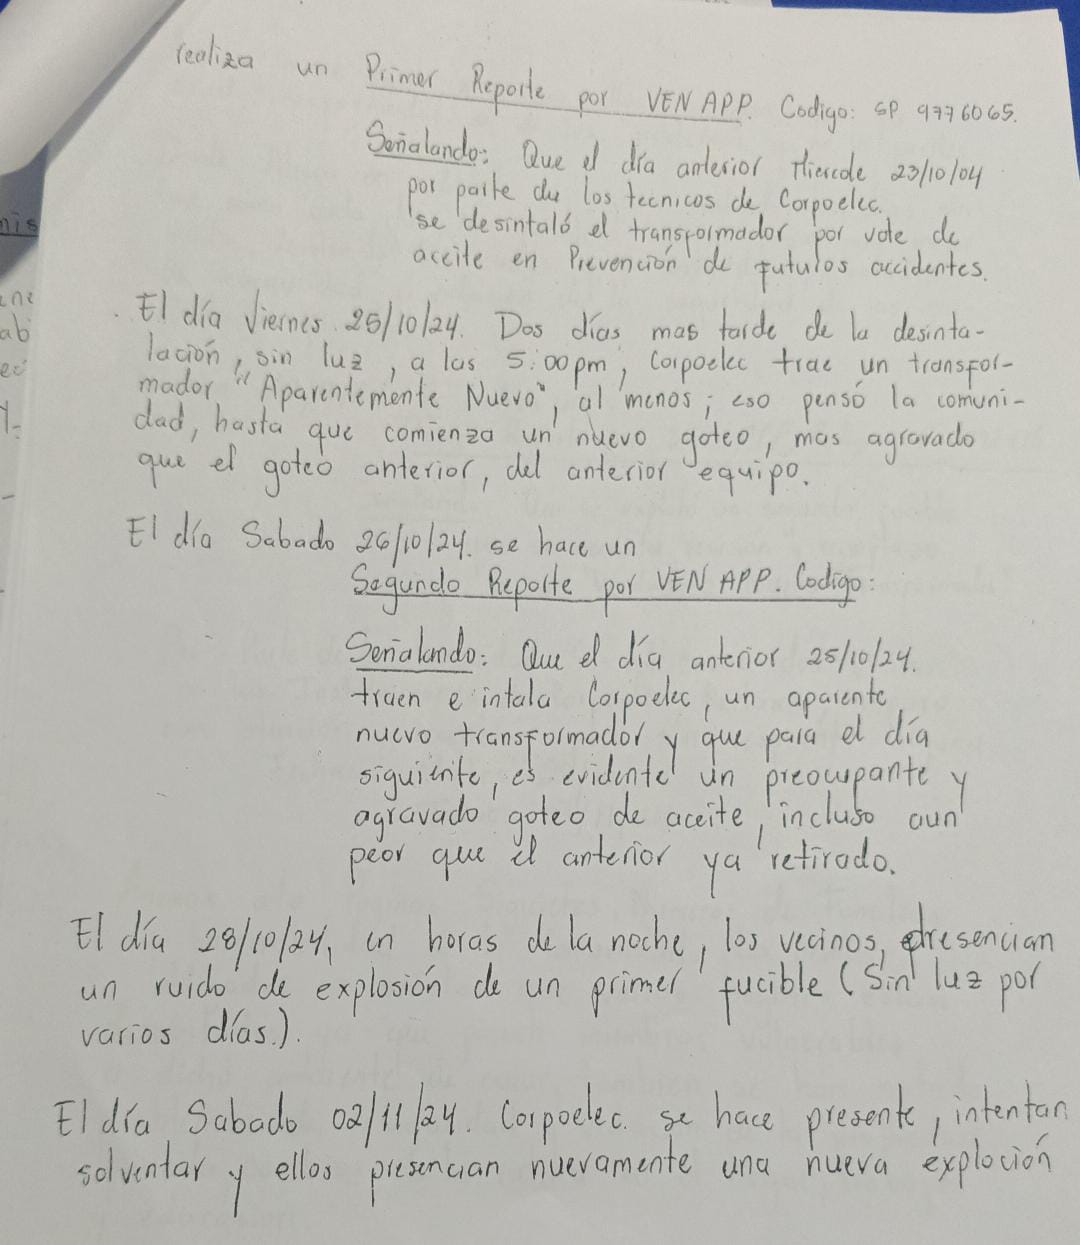 realiza un Primer Reporte por VEN APP. Codigo: SP 9776065.
Señalando: Que el día anterior Miercole 23/10/04
por parte de los tecnicos de Corpoelec.
se desintaló el transformador por vote de
aceite en Prevención de futuros accidentes.
El día Viernes 25/10/24. Dos días mas tarde de la desinta-
lación, sin luz, a las 5:00pm, Corpoelec trae un transfor-
mador "Aparentemente Nuevo", al menos; eso pensó la comuni-
dad, hasta que comienza un nuevo goteo, mas agravado
que el goteo anterior, del anterior equipo.
El día Sabado 26/10/24. se hace un
Segundo Reporte por VEN APP. Codigo:
Señalando: Que el día anterior 25/10/24.
traen e intala Corpoelec, un aparente
nuevo transformador y que para el día
siguiente, es evidente un preocupante y
agravado goteo de aceite, incluso aun
peor que el anterior ya retirado.
El día 28/10/24, en horas de la noche, los vecinos, presencian
un ruido de explosión de un primer fucible (Sin luz por
varios días.).
El día Sabado 02/11/24. Corpoelec. se hace presente, intentan
solventar y ellos presencian nuevamente una nueva explocion